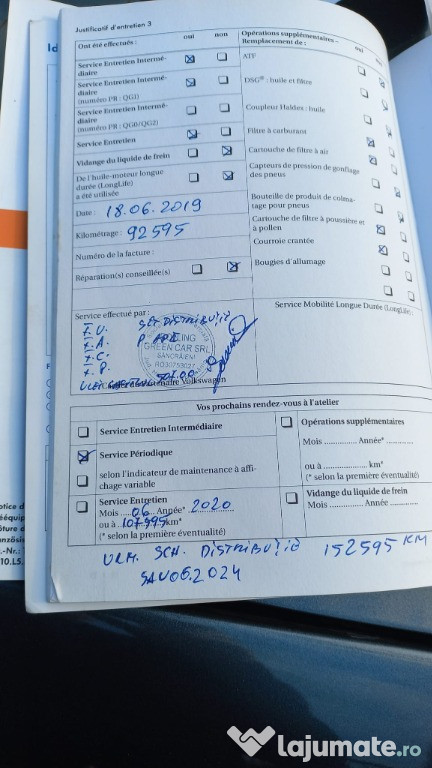 Justificatif d'entretien 3
Ont été effectués : oui non
Service Entretien Intermé-
diaire
Service Entretien Intermé-
diaire
(numéro PR : QG1)
Service Entretien Intermé-
diaire
(numéro PR : QG0/QG2)
Service Entretien
Vidange du liquide de frein
De l'huile-moteur longue
durée (LongLife)
a été utilisée
Date : 18.06.2019
Kilométrage : 92595
Numéro de la facture :
Réparation(s) conseillée(s)
Opérations supplémentaires –
Remplacement de : oui
ATF
DSG® : huile et filtre
Coupleur Haldex : huile
Filtre à carburant
Cartouche de filtre à air
Capteurs de pression de gonflage
des pneus
Bouteille de produit de colma-
tage pour pneus
Cartouche de filtre à poussière et
à pollen
Courroie crantée
Bougies d'allumage
Service effectué par :
SET DISTRIBUTIE
F. A. P. APĂ
GREEN CAR SRL
SÂNCRĂIENI
507.00
Volkswagen
Service Mobilité Longue Durée (LongLife
Vos prochains rendez-vous à l'atelier
Service Entretien Intermédiaire
Service Périodique
selon l'indicateur de maintenance à affi-
chage variable
Service Entretien
Mois 06 Année* 2020
ou à 107595 km*
(* selon la première éventualité)
Opérations supplémentaires
Mois .............. Année* ..............
ou à .............. km*
(* selon la première éventualité)
Vidange du liquide de frein
Mois .............. Année ..............
URM. SCH. DISTRIBUTIE 152595 KM
SAU 06.2024
lajumate.ro